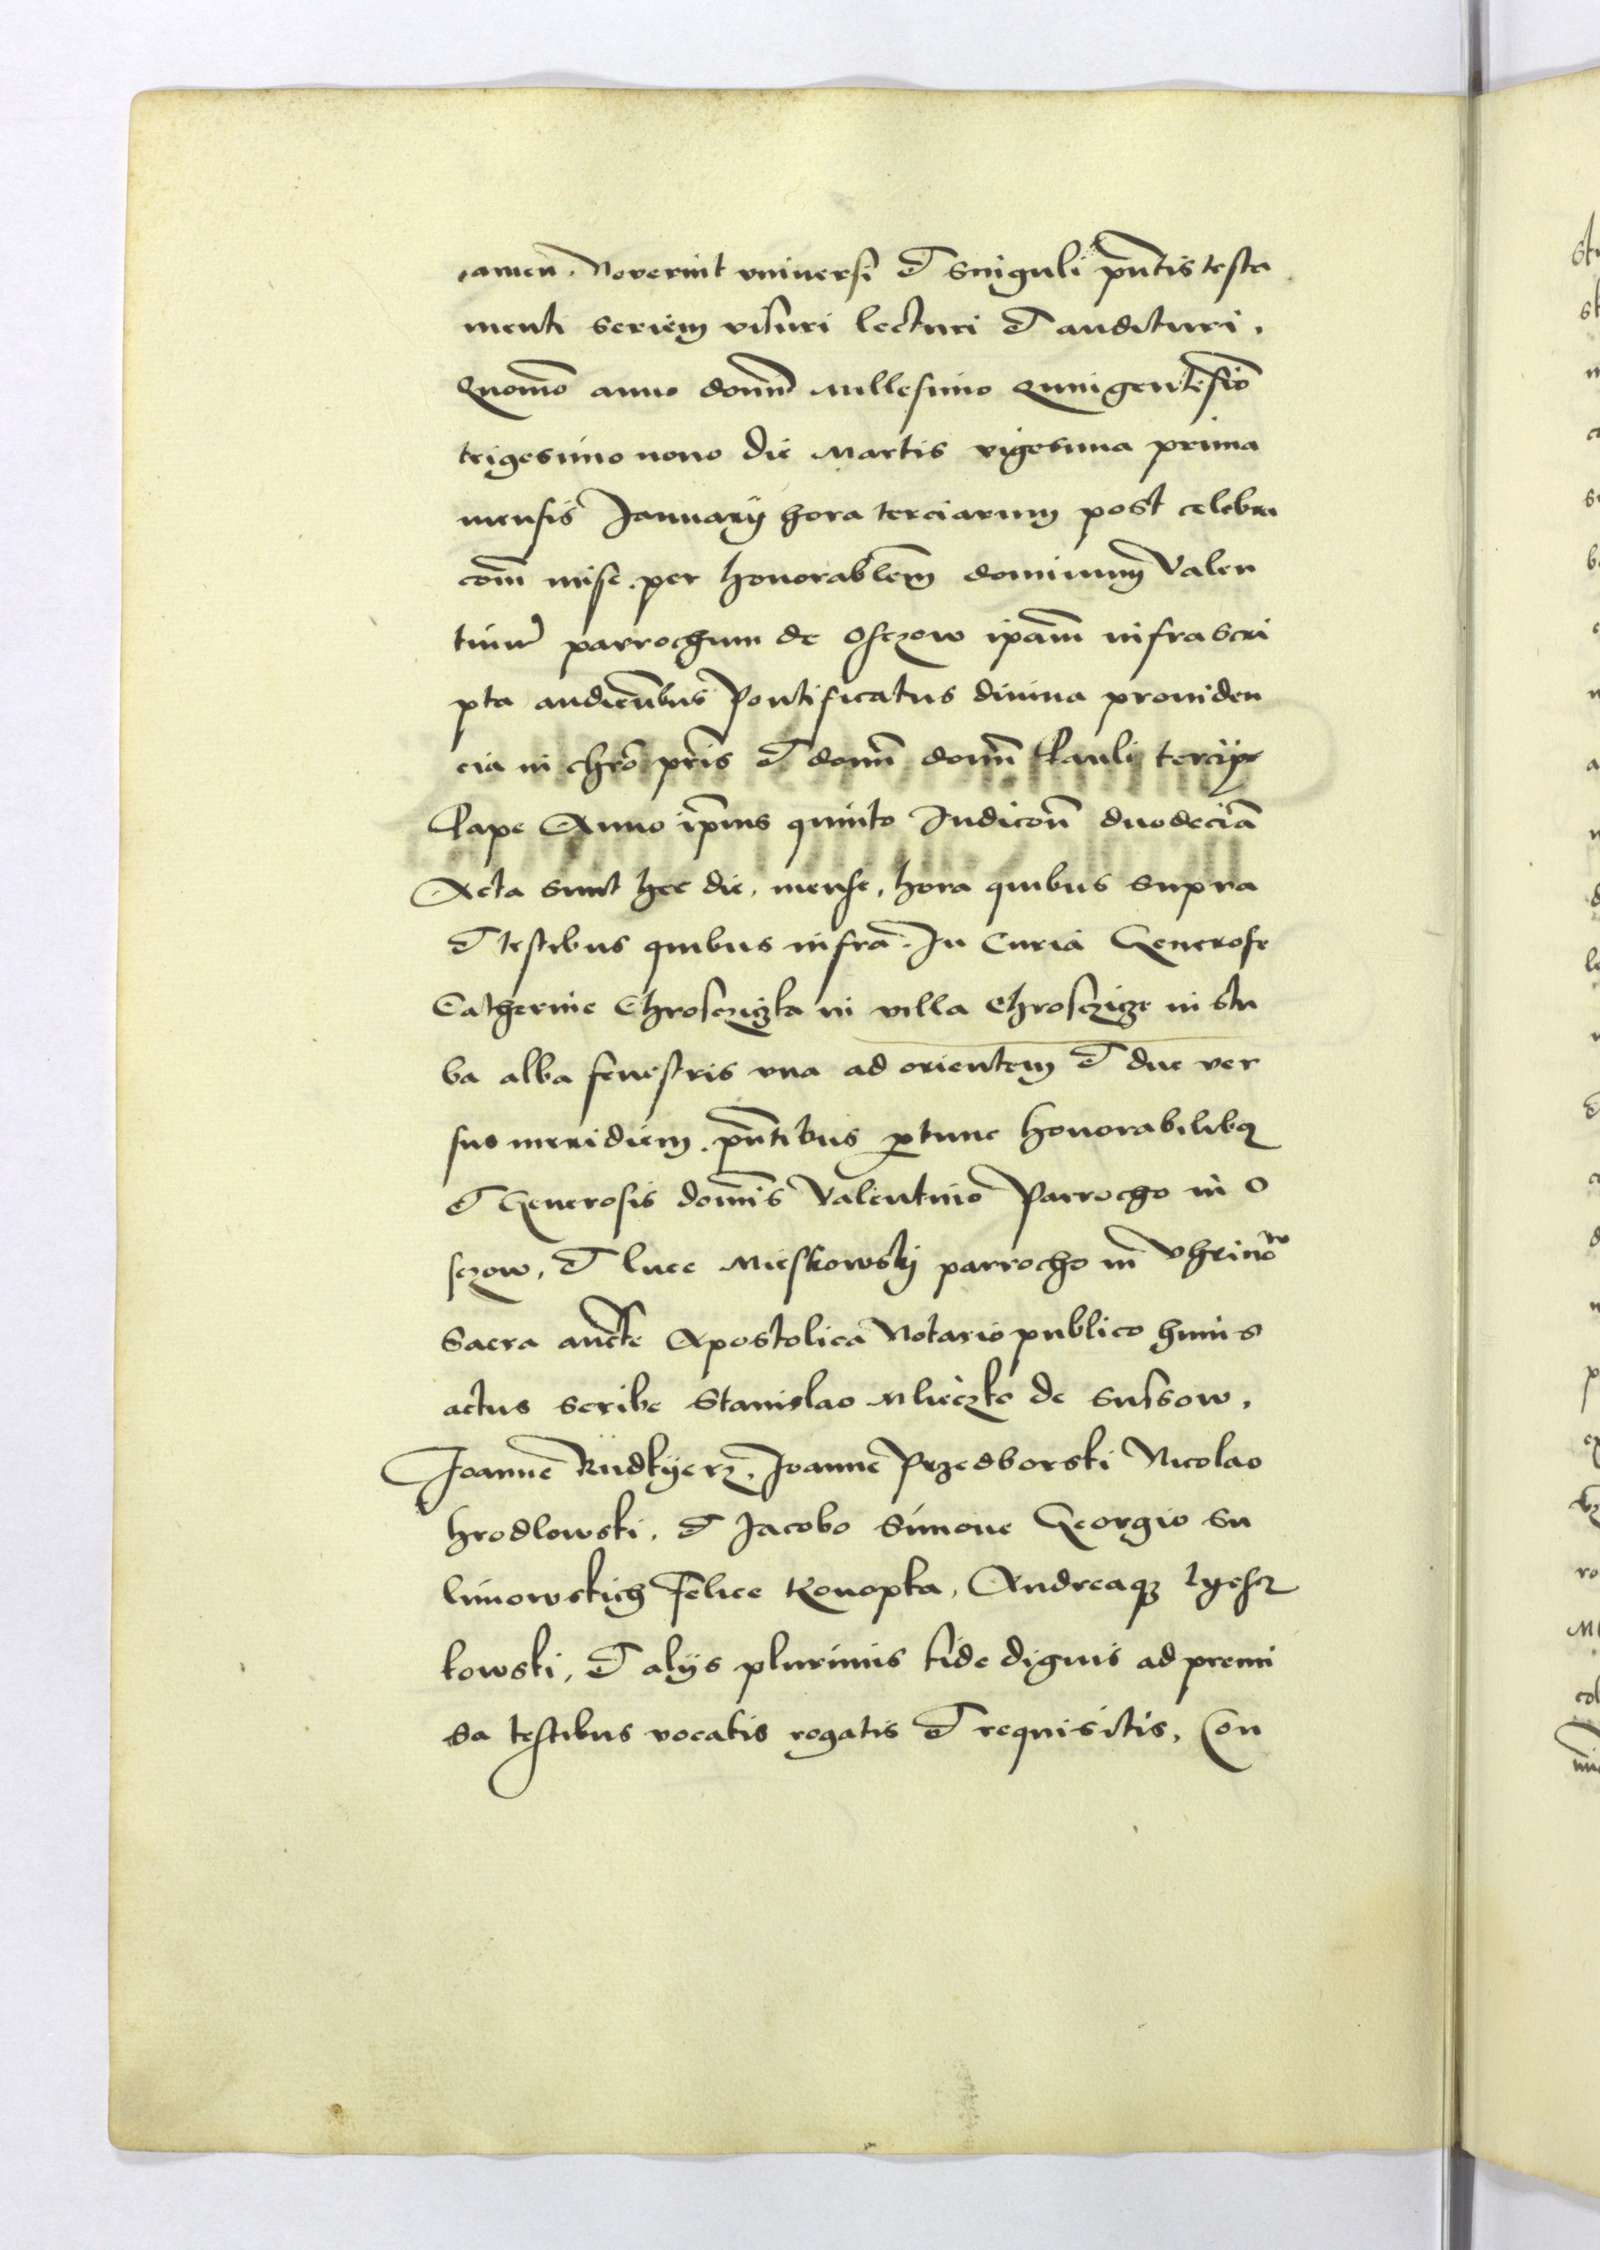 amen. Noverint vniuersi et singuli pntis testa
menti seriem visuri lecturi et audituri.
Quomo anno domi Millesimo Quingentesio
trigesimo nono die Martis vigesima prima
mensis Januarij hora terciarum post celebra
com misse per honorablem dominum Valen
tinum parrochum de Osczow ipam infrascri
pta audientibus Pontificatus diuina prouiden
cia in chro pris et domi domi Pauli tercij
Pape Anno ipius quinto Indiconi duodecia
Acta sunt hec die, mense, hora quibus supra
et testibus quibus infra. In Curia Generose
Catherine Chroscziczka in villa Chrosczicze in stu
ba alba fenestris vna ad orientem et due ver
sus meridiem. pntibus pertunc honorabilibus
et Generosis domis Valentino Parrocho in O
sczow, et luce Mieskowskj parrocho in Vhrinow
Sacra aucte Apostolica Notario publico huius
actus scribe Stanislao Mlieczko de Sussow,
Joanne Rudkÿerz, Joanne Przedborski Nicolao
hrodlowski, et Jacobo Simone Georgio Su
limowskich felice Konopka, Andreaque
kowski, et alijs plurimis fide dignis ad premi
sa testibus vocatis rogatis et requisitis, Con